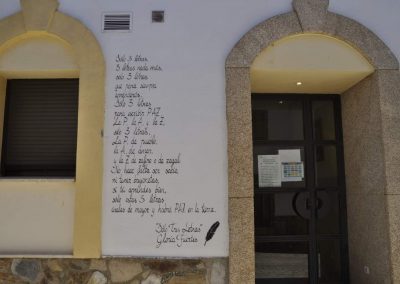 Sólo 3 letras,
3 letras nada más,
sólo 3 letras
que para siempre
aprenderás.
Sólo 3 letras
para escribir PAZ.
La P, la A, y la Z,
sólo 3 letras.
La P, de pueblo,
la A, de amar,
y la Z de zafiro o de zagal.
No hace falta ser sabio,
ni tener bayonetas,
si tú aprendes bien,
sólo estas 3 letras
úsalas de mayor y habrá PAZ en la tierra.
"Sólo Tres Letras"
Gloria Fuertes